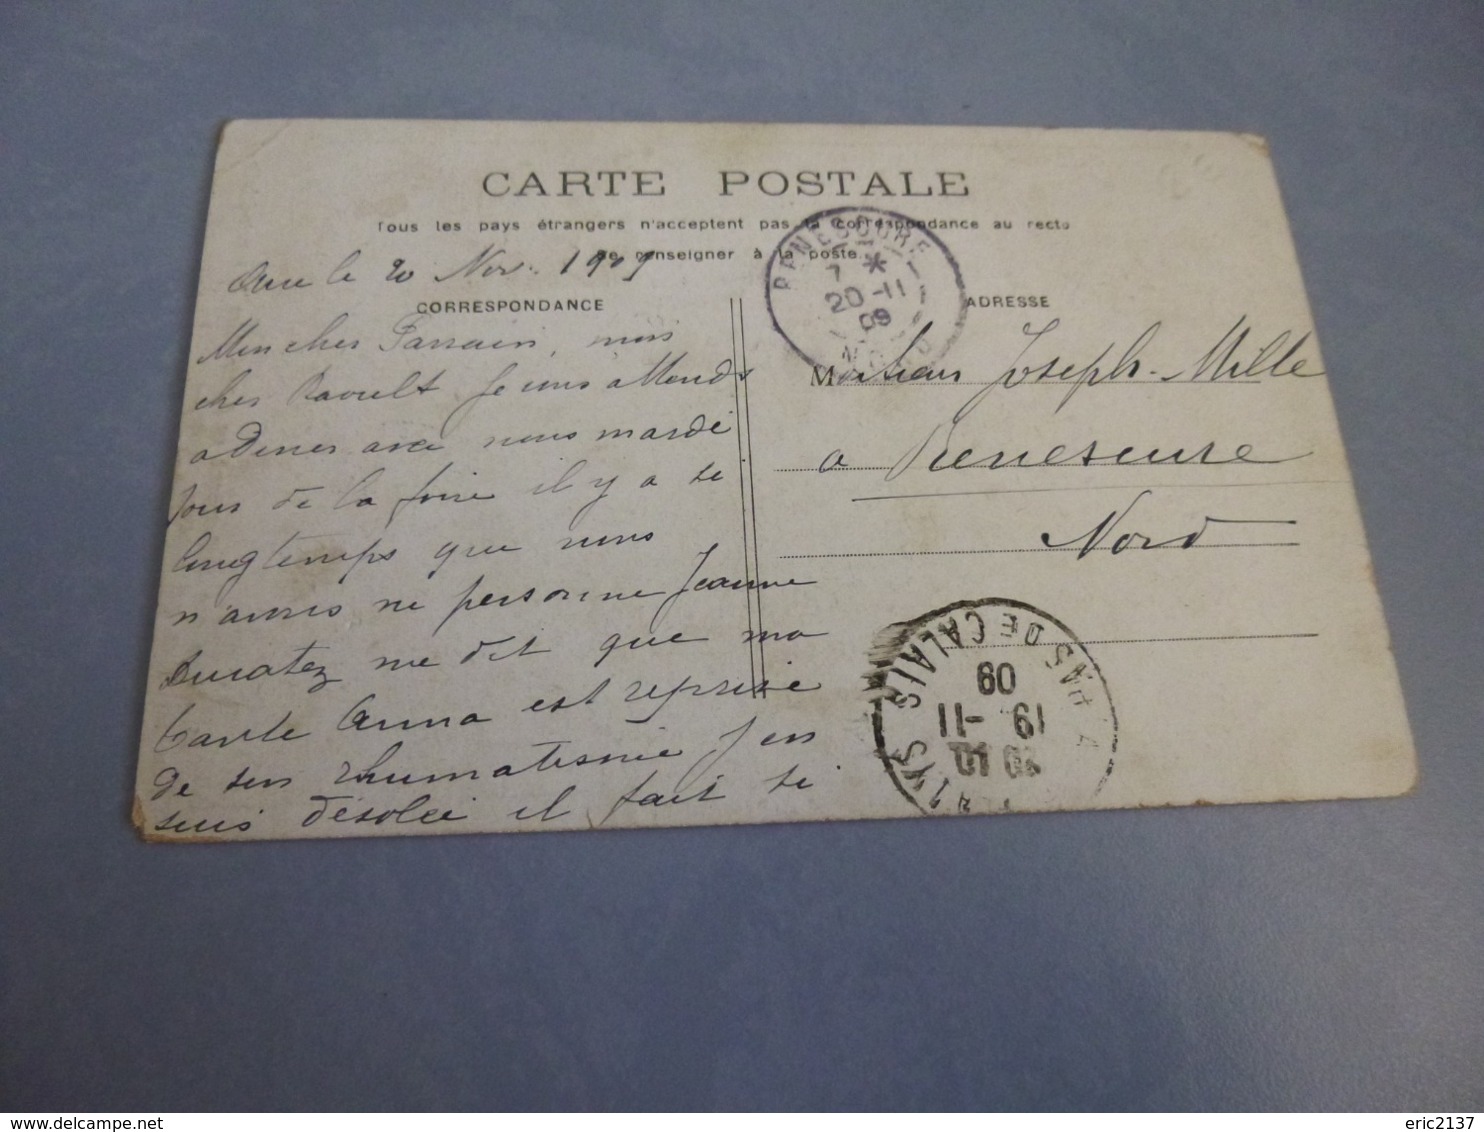 CARTE POSTALE
Tous les pays étrangers n'acceptent pas la correspondance au recto
Se renseigner à la poste.
le 20 Nov. 1909
CORRESPONDANCE
ADRESSE
RENESCURE
7 *
20 -11
09
NORD
Mon cher Parrain, mon
cher Raoult Je vous attends
a Diner avec nous mardi
jour de la foire il y a si
longtemps que nous
n'avons vu personne Jeanne
Ducatez me dit que ma
tante Anna est reprise
de son rhumatisme J'en
suis désolée il fait si
Monsieur Joseph Mille
a Renescure
Nord
PAS DE CALAIS
09
19 -11
eric2137